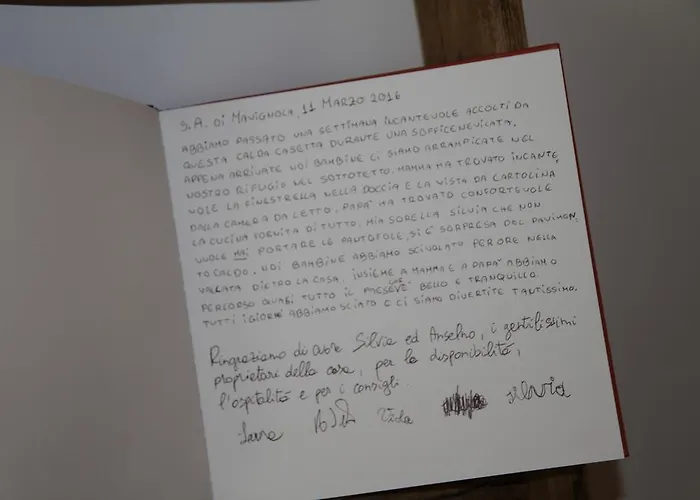 S. A. DI MAVIGNOLA, 11 MARZO 2016
ABBIAMO PASSATO UNA SETTIMANA INCANTEVOLE ACCOLTI DA
QUESTA CALDA CASETTA DURANTE UNA SOFFICE NEVICATA.
APPENA ARRIVATE NOI BAMBINE CI SIAMO ARRAMPICATE NEL
NOSTRO RIFUGIO NEL SOTTOTETTO, MAMMA HA TROVATO INCANTE
VOLE LA FINESTRELLA NELLA DOCCIA E LA VISTA DA CARTOLINA
DALLA CAMERA DA LETTO, PAPA' HA TROVATO CONFORTEVOLE
LA CUCINA FORNITA DI TUTTO, MIA SORELLA SILVIA CHE NON
VUOLE MAI PORTARE LE PANTOFOLE, SI E' SORPRESA DEL PAVIMEN
TO CALDO. NOI BAMBINE ABBIAMO SCIVOLATO PER ORE NELLA
VALLATA DIETRO LA CASA. INSIEME A MAMMA E A PAPA' ABBIAMO
PERCORSO QUASI TUTTO IL PAESE CHE E' BELLO E TRANQUILLO.
TUTTI I GIORNI ABBIAMO SCIATO E CI SIAMO DIVERTITE TANTISSIMO.
Ringraziamo di cuore Silvia ed Anselmo, i gentilissimi
proprietari della casa, per la disponibilità,
l'ospitalità e per i consigli.
silvia